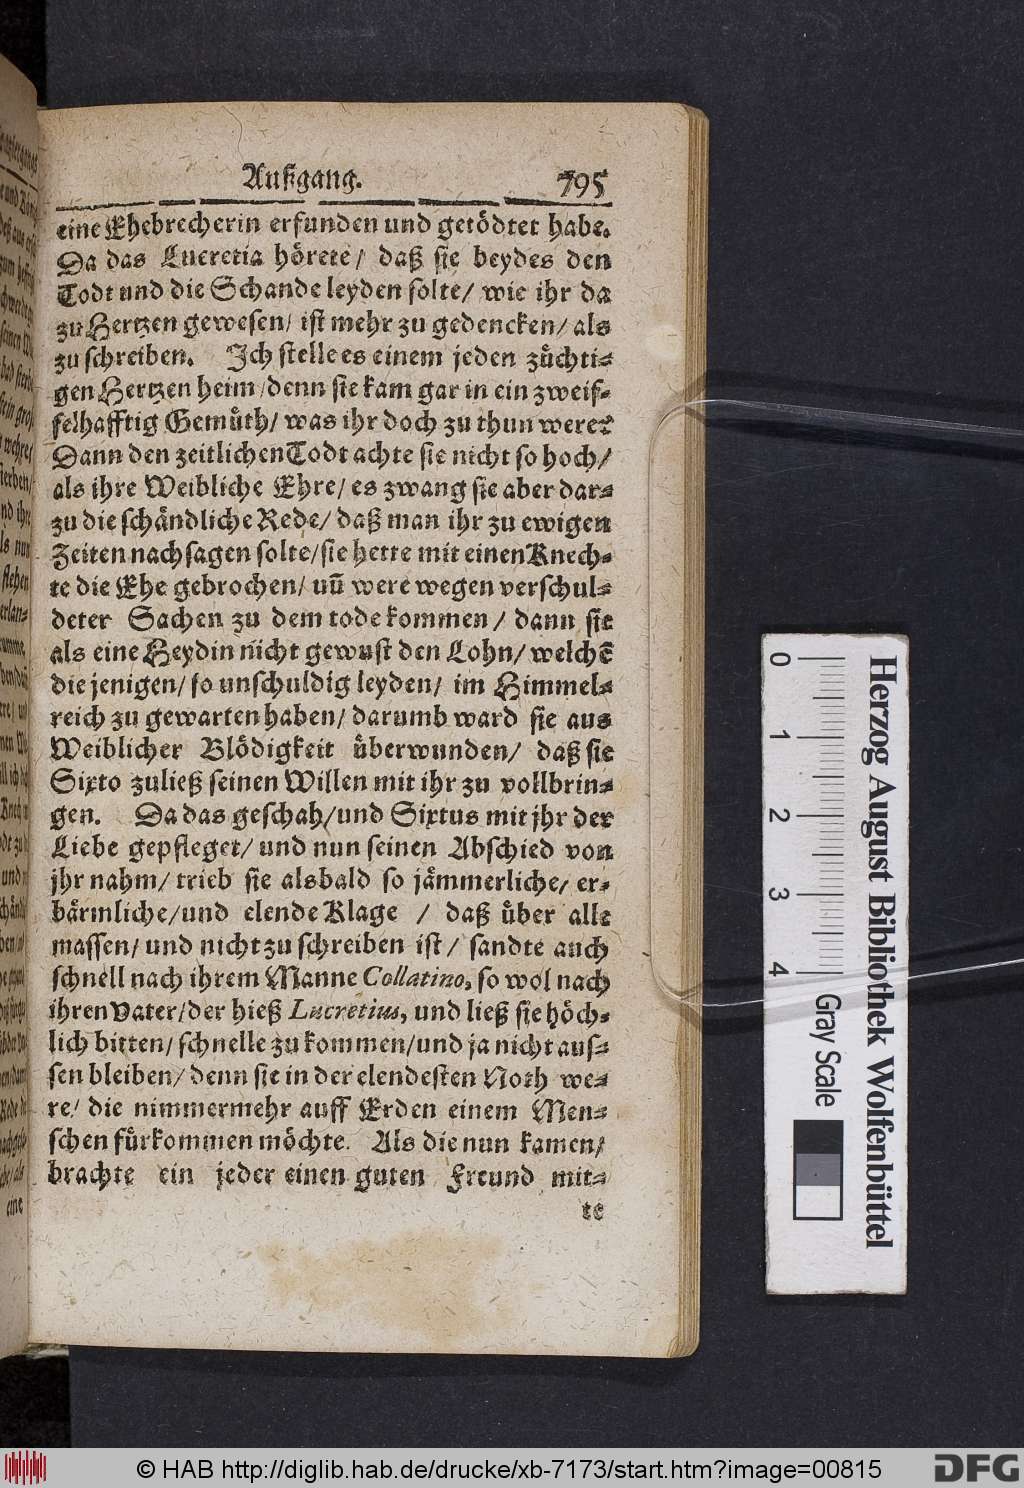 Außgang. 795
eine Ehebrecherin erfunden und getödtet habe.
Da das Lucretia hörete/ daß sie beydes den
Todt und die Schande leyden solte/ wie ihr da
zu Hertzen gewesen/ ist mehr zu gedencken/ als
zu schreiben. Ich stelle es einem jeden züchti-
gen Hertzen heim/denn sie kam gar in ein zweif-
felhafftig Gemüth/ was ihr doch zu thun were?
Dann den zeitlichen Todt achte sie nicht so hoch/
als ihre Weibliche Ehre/ es zwang sie aber dar-
zu die schändliche Rede/ daß man ihr zu ewigen
Zeiten nachsagen solte/sie hette mit einen Knech-
te die Ehe gebrochen/ uñ were wegen verschul-
deter Sachen zu dem tode kommen/ dann sie
als eine Heydin nicht gewust den Lohn/ welchẽ
die jenigen/ so unschuldig leyden/ im Himmel-
reich zu gewarten haben/ darumb ward sie aus
Weiblicher Blödigkeit überwunden/ daß sie
Sixto zuließ seinen Willen mit ihr zu vollbrin-
gen. Da das geschah/und Sixtus mit jhr der
Liebe gepfleget/ und nun seinen Abschied von
jhr nahm/ trieb sie alsbald so jämmerliche/ er-
bärmliche/und elende Klage / daß über alle
massen/ und nicht zu schreiben ist/ sandte auch
schnell nach ihrem Manne Collatino, so wol nach
ihren Vater/der hieß Lucretius, und ließ sie höch-
lich bitten/ schnelle zu kommen/und ja nicht aus-
sen bleiben/ denn sie in der elendesten Noth we-
re/ die nimmermehr auff Erden einem Men-
schen fürkommen möchte. Als die nun kamen/
brachte ein jeder einen guten Freund mit-
te
0 1 2 3 4
Gray Scale
Herzog August Bibliothek Wolfenbüttel
© HAB http://diglib.hab.de/drucke/xb-7173/start.htm?image=00815
DFG